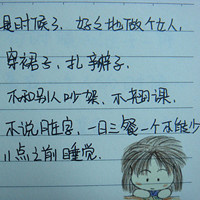 是时候了,好之地做个女人,
穿裙子,扎辫子.
不和别人吵架,不翘课.
不说脏字,一日三餐一个不能少
11点之前睡觉.